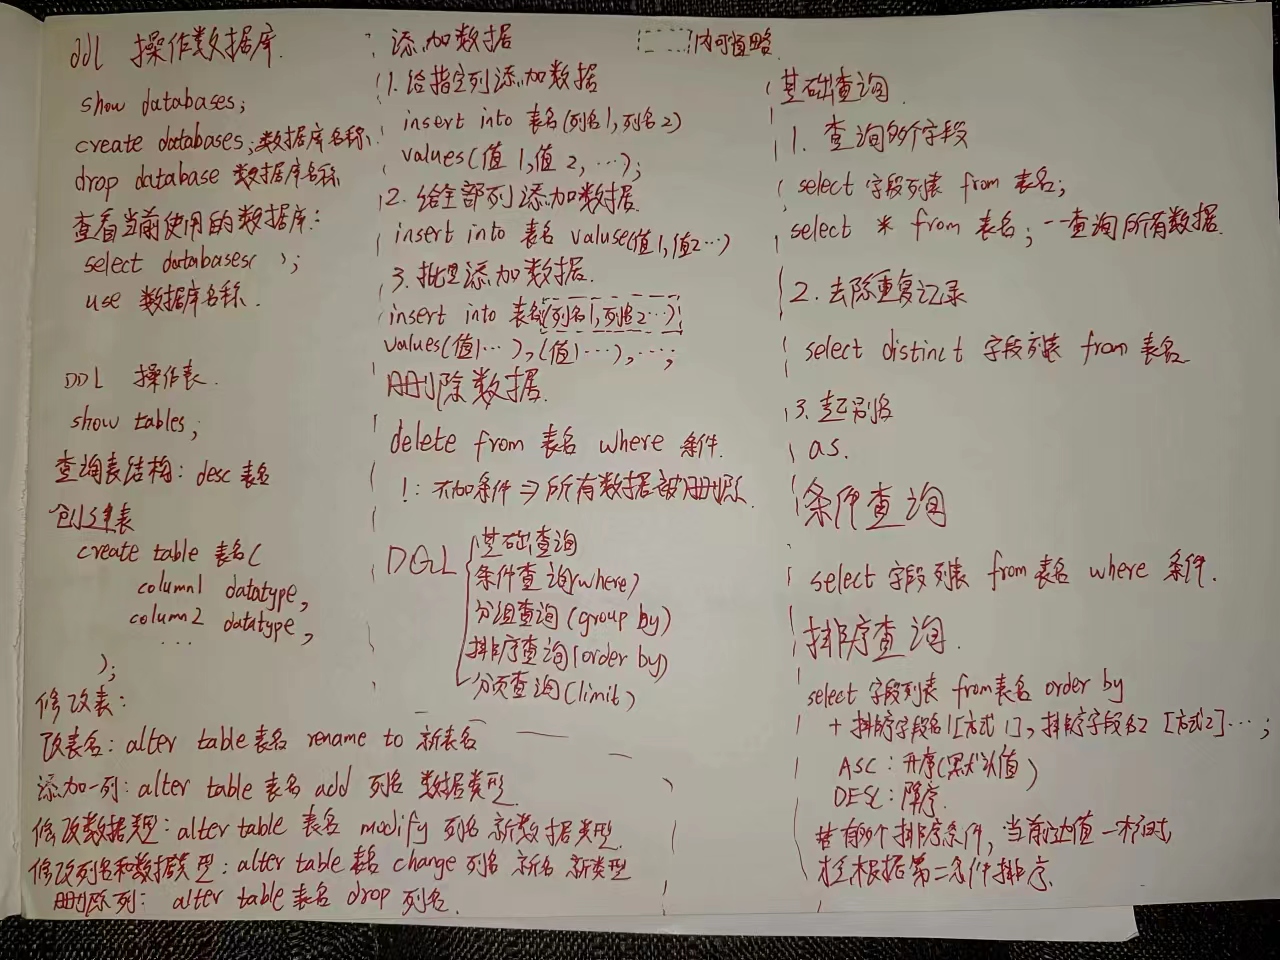 DDL 操作数据库.
show databases;
create databases;数据库名称、
drop database 数据库名称
查看当前使用的数据库:
select databases( );
use 数据库名称.
DDL 操作表.
show tables;
查询表结构: desc 表名
创建表
create table 表名(
column1 datatype,
column2 datatype,
...
);
修改表:
改表名: alter table 表名 rename to 新表名
添加一列: alter table 表名 add 列名 数据类型
修改数据类型: alter table 表名 modify 列名 新数据类型.
修改列名和数据类型: alter table 表名 change 列名 新名 新类型
删除列: alter table 表名 drop 列名.
添加数据
内可省略
1. 给指定列添加数据
insert into 表名(列名1,列名2)
values(值1,值2,…);
2. 给全部列添加数据.
insert into 表名 valuse(值1,值2…)
3. 批量添加数据.
insert into 表名(列名1,列名2…)
values(值1…),(值1…),…;
删除数据.
delete from 表名 where 条件.
!: 不加条件⇒所有数据被删除.
DGL
基础查询
条件查询(where)
分组查询(group by)
排序查询(order by)
分页查询(limit)
基础查询.
1. 查询多个字段
select 字段列表 from 表名;
select * from 表名; --查询所有数据.
2. 去除重复记录
select distinct 字段列表 from 表名
3. 起别名
as.
条件查询
select 字段列表 from 表名 where 条件.
排序查询.
select 字段列表 from表名 order by
+ 排序字段名1[方式1],排序字段名2 [方式2]…;
ASC: 升序(默认值)
DESC: 降序.
若有多个排序条件,当前边值一样时,
根据第二条件排序.